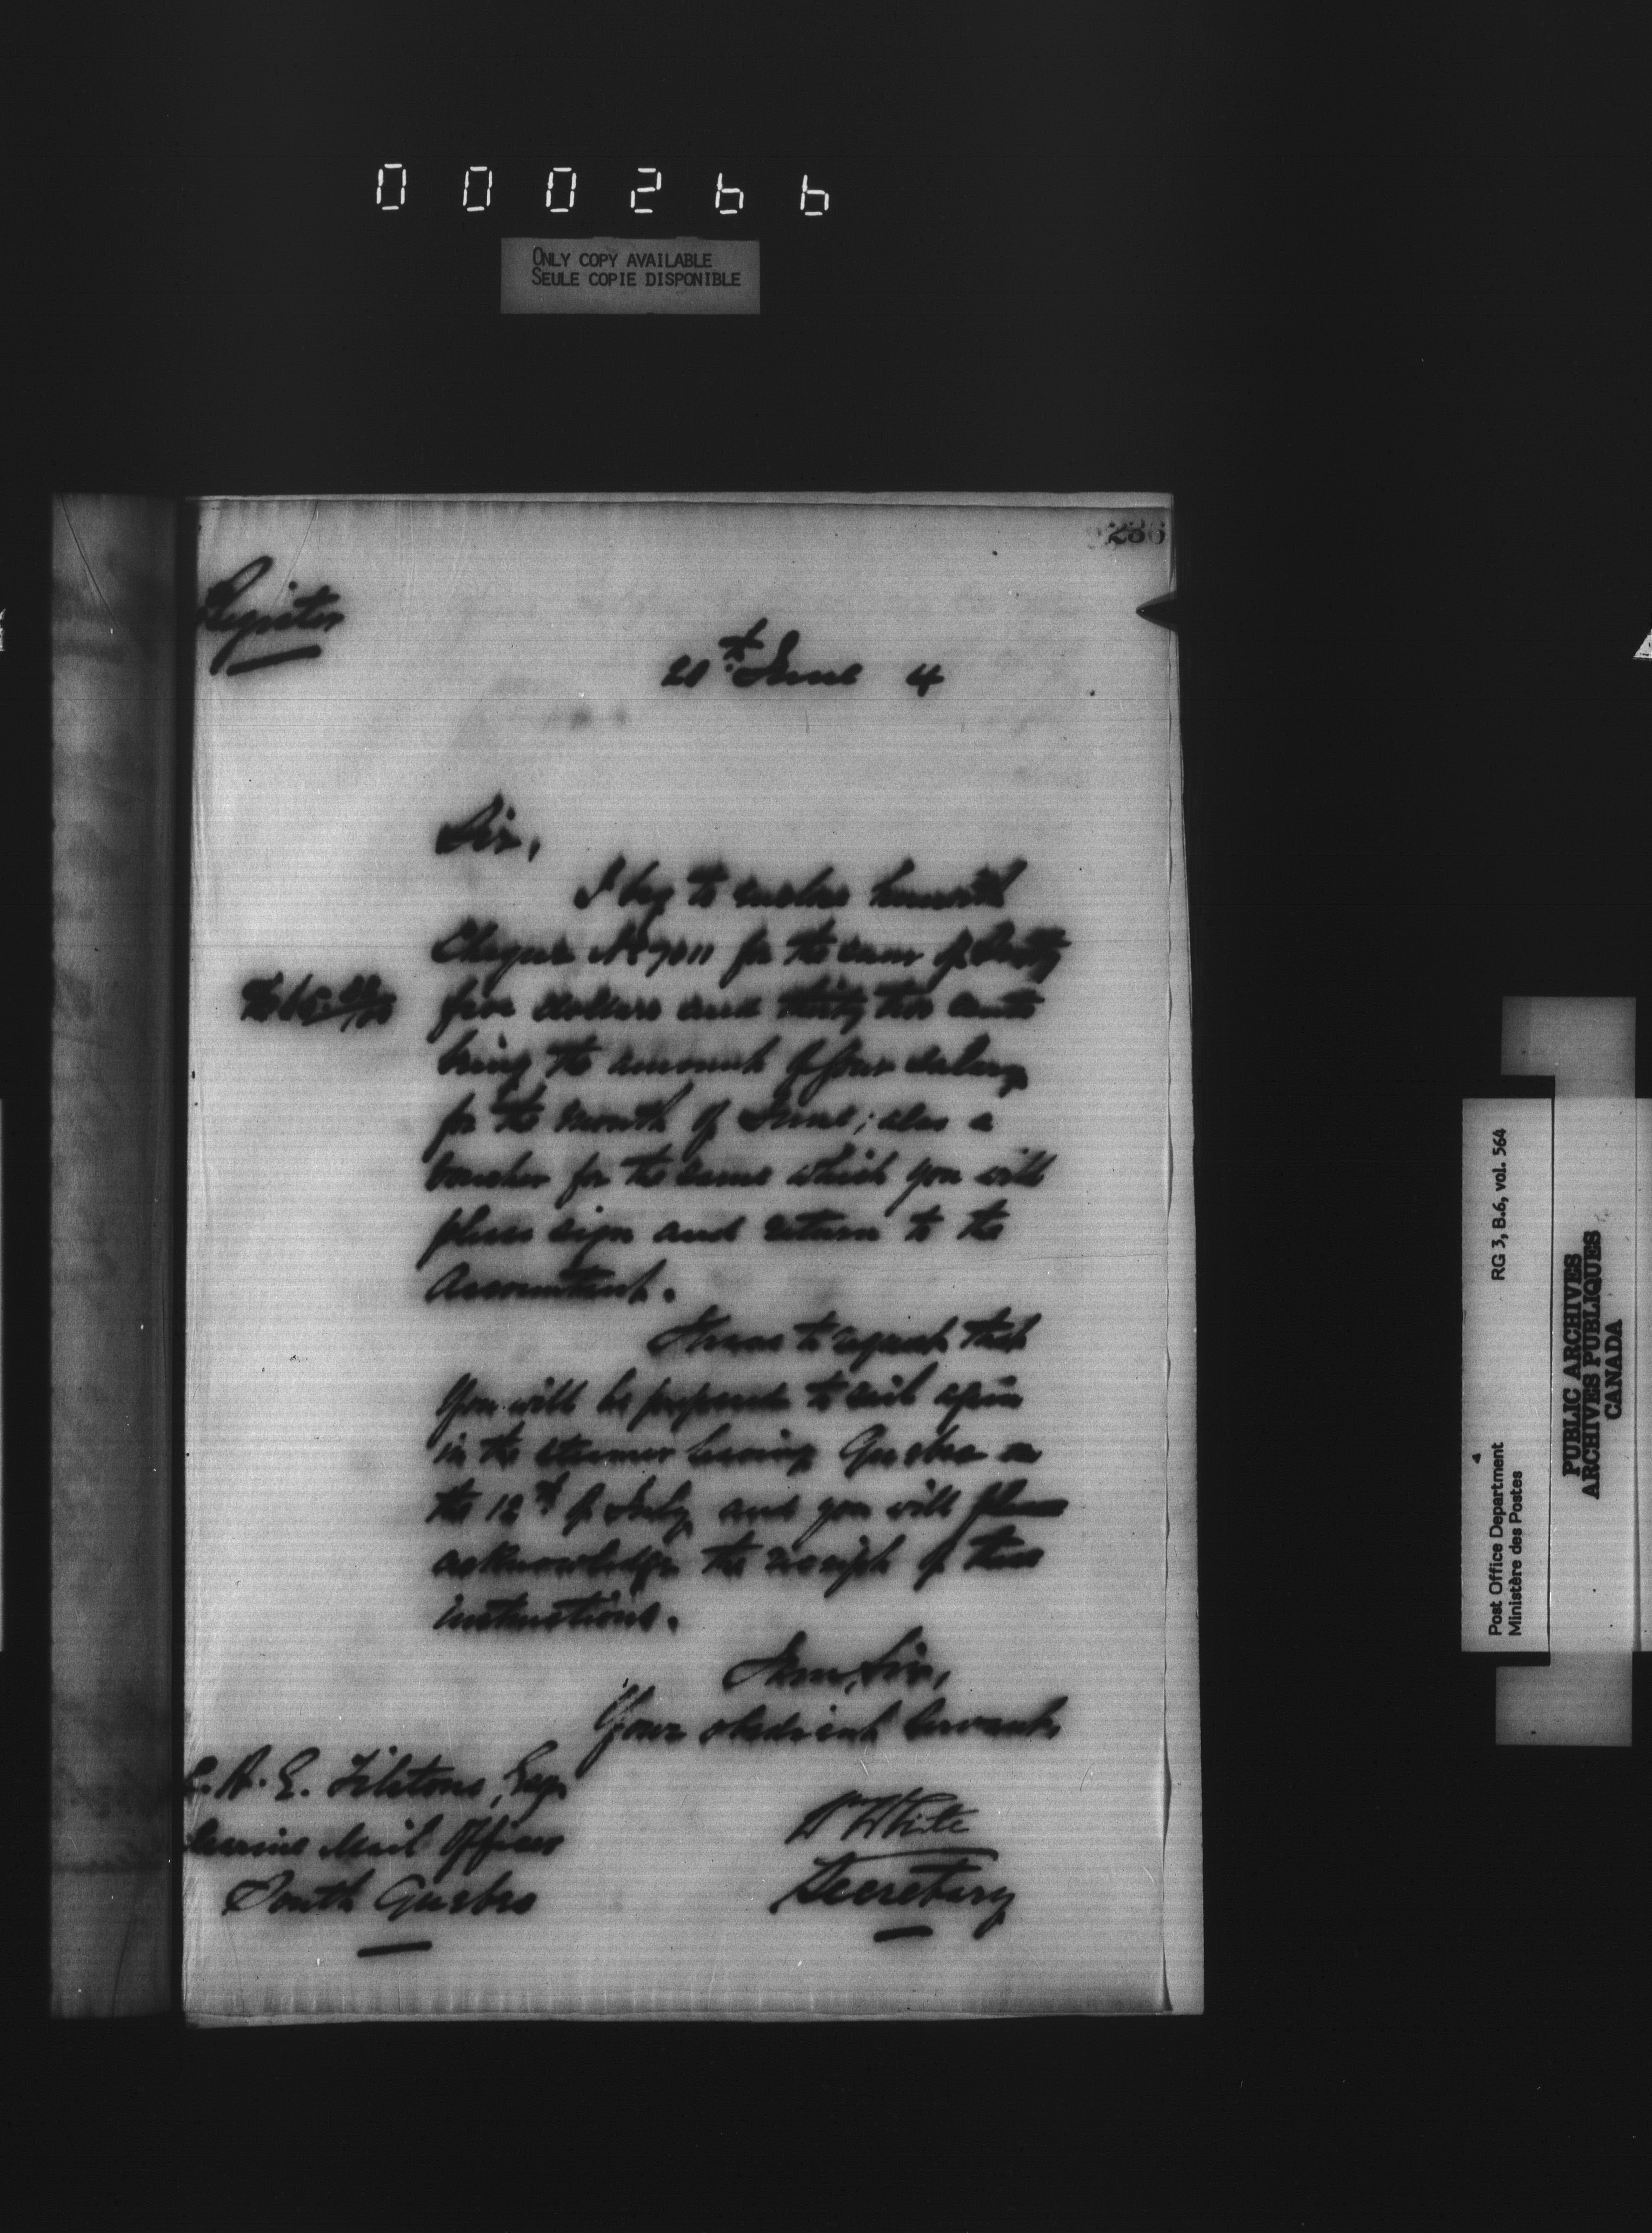 000266
ONLY COPY AVAILABLE
SEULE COPIE DISPONIBLE
236
Register
20th June 4
Sir,
I beg to enclose herewith
Cheque No 7011 for the sum of
five dollars and thirty two cents
being the amount of your salary
for the month of June; also a
voucher for the same which you will
please sign and return to the
Accountant.
I have to request that
you will be prepared to sail again
in the steamer leaving Quebec on
the 12th of July and you will please
acknowledge the receipt of these
instructions.
I am, Sir,
Your obedient Servant,
Wm White
Secretary
A. E. Esq.
Marine Mail Officer
South Quebec
Post Office Department
Ministère des Postes
RG 3, B.6, vol. 564
PUBLIC ARCHIVES
ARCHIVES PUBLIQUES
CANADA